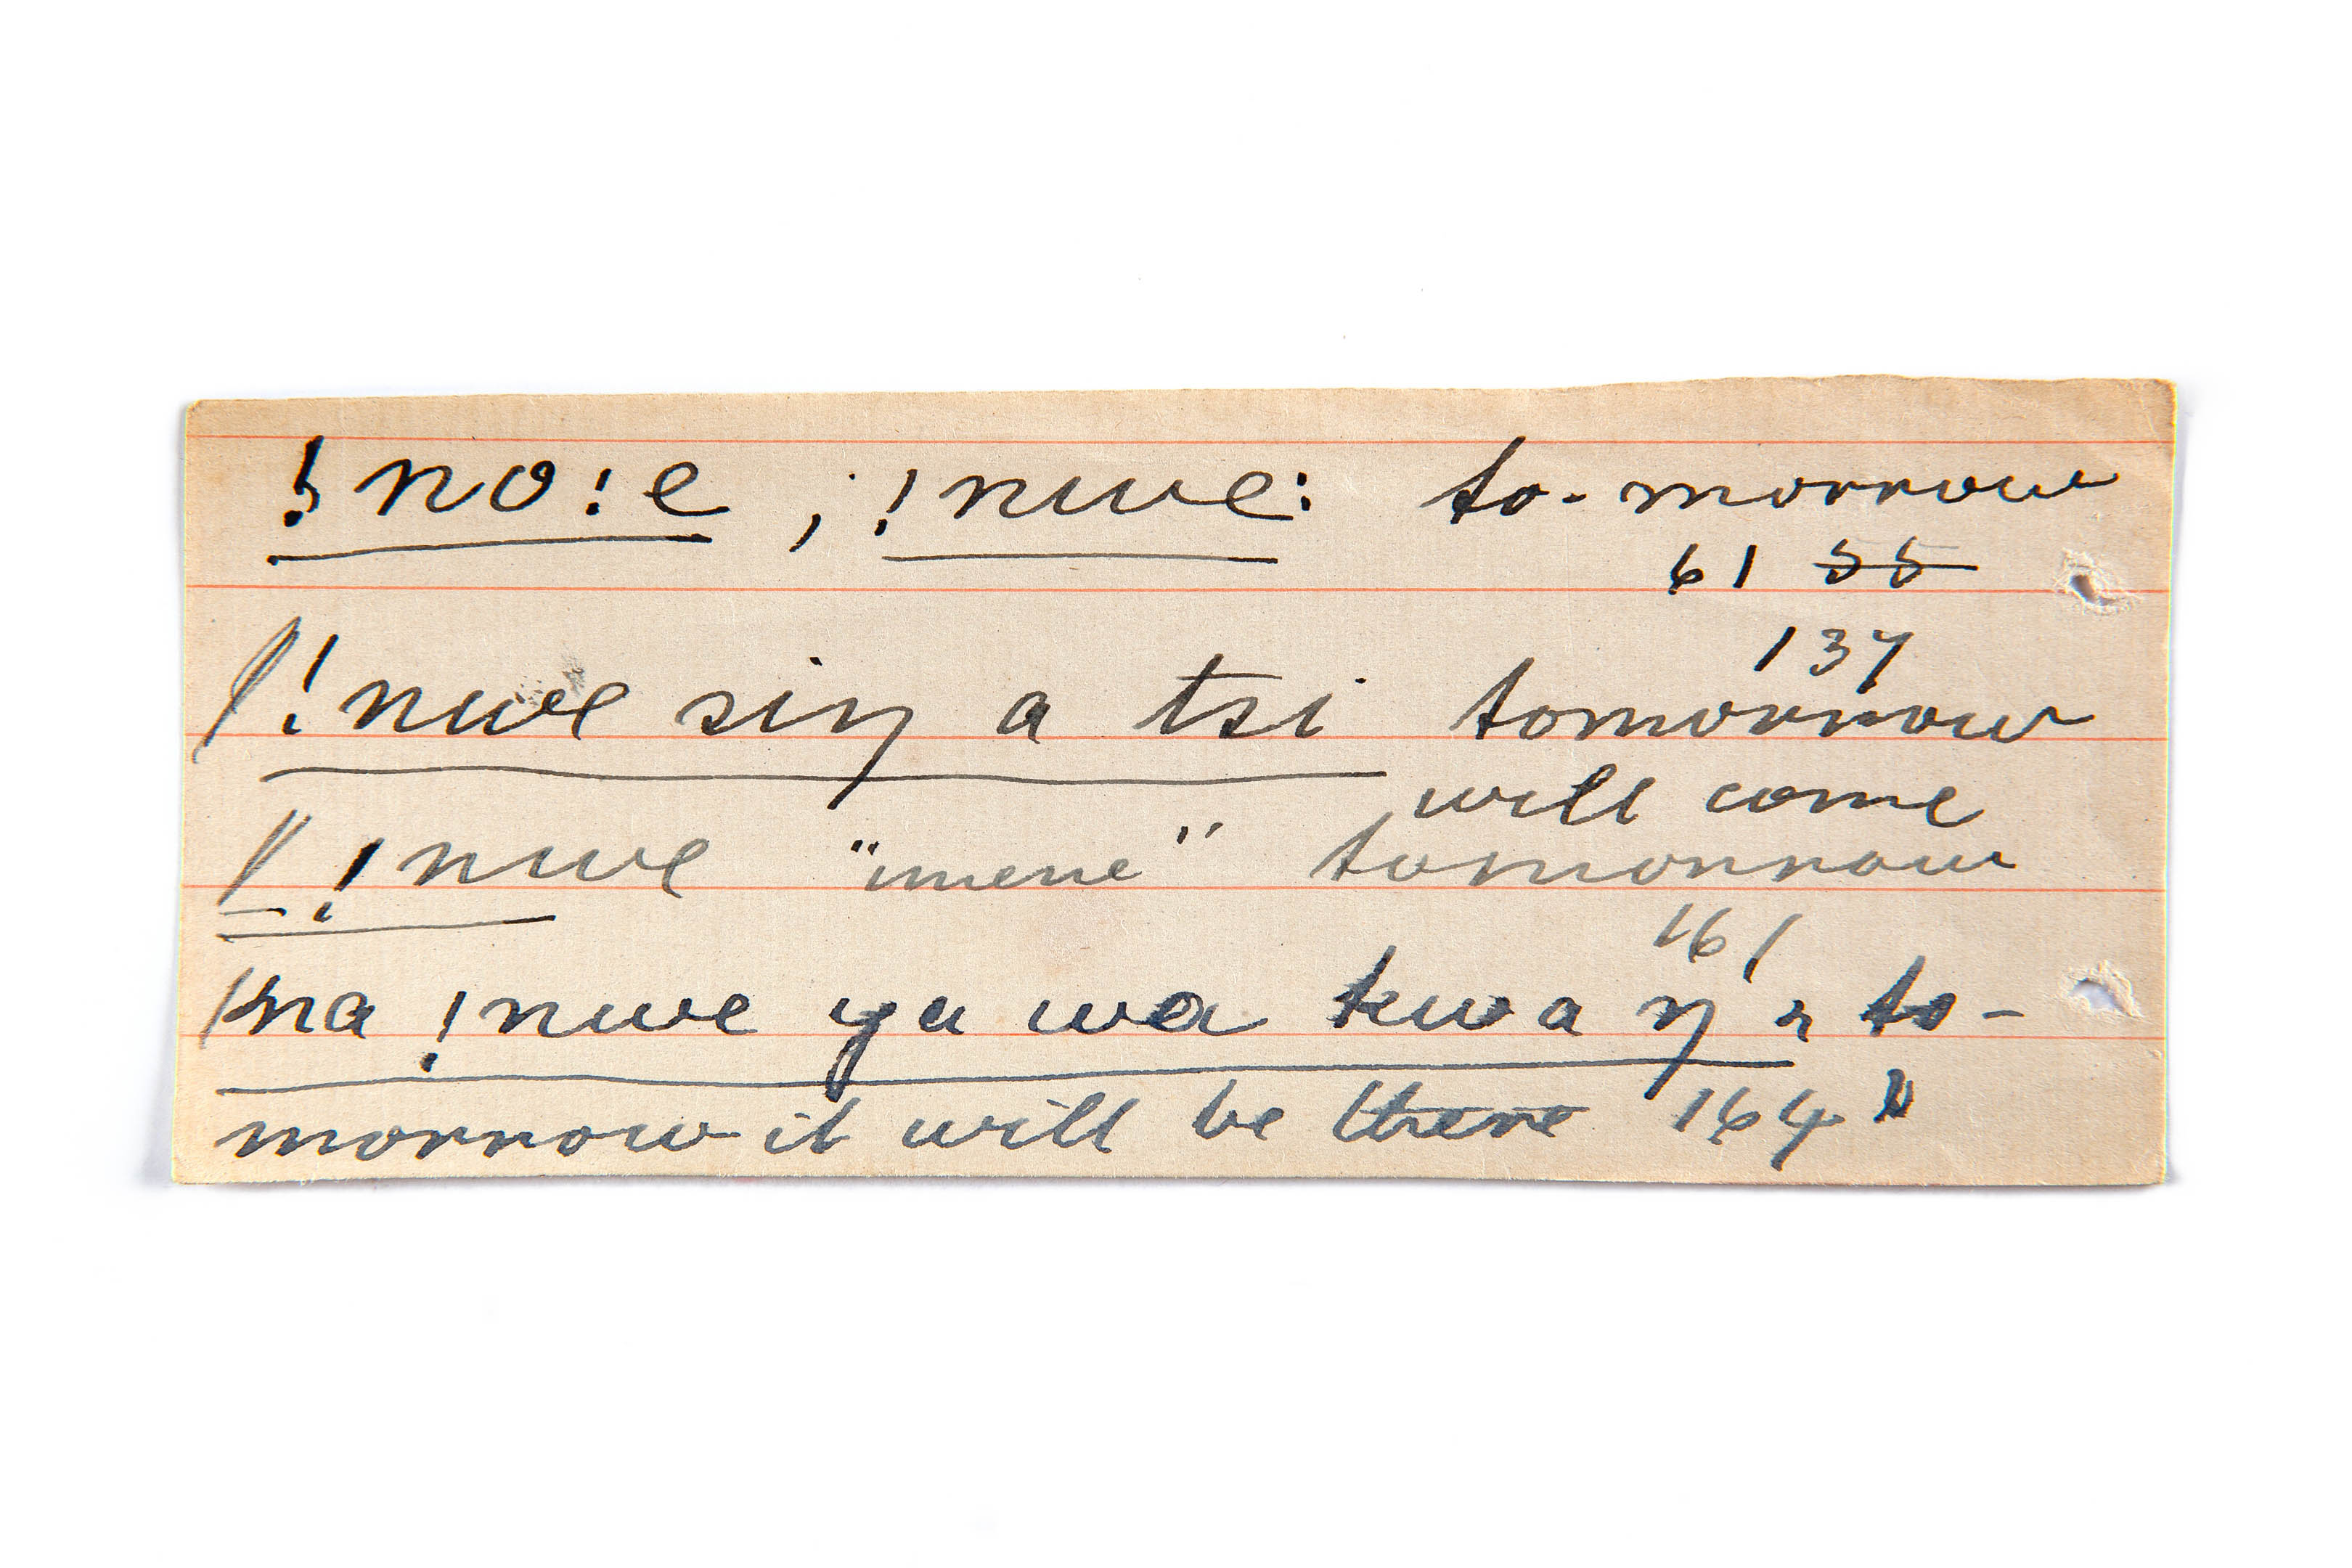 !no:e ; !nwe: to-morrow
61 55
137
!nwe siŋ a tsi tomorrow
will come
!nwe "imene" tomorrow
161
na !nwe ya wa kwa ŋ to-
morrow it will be there 164